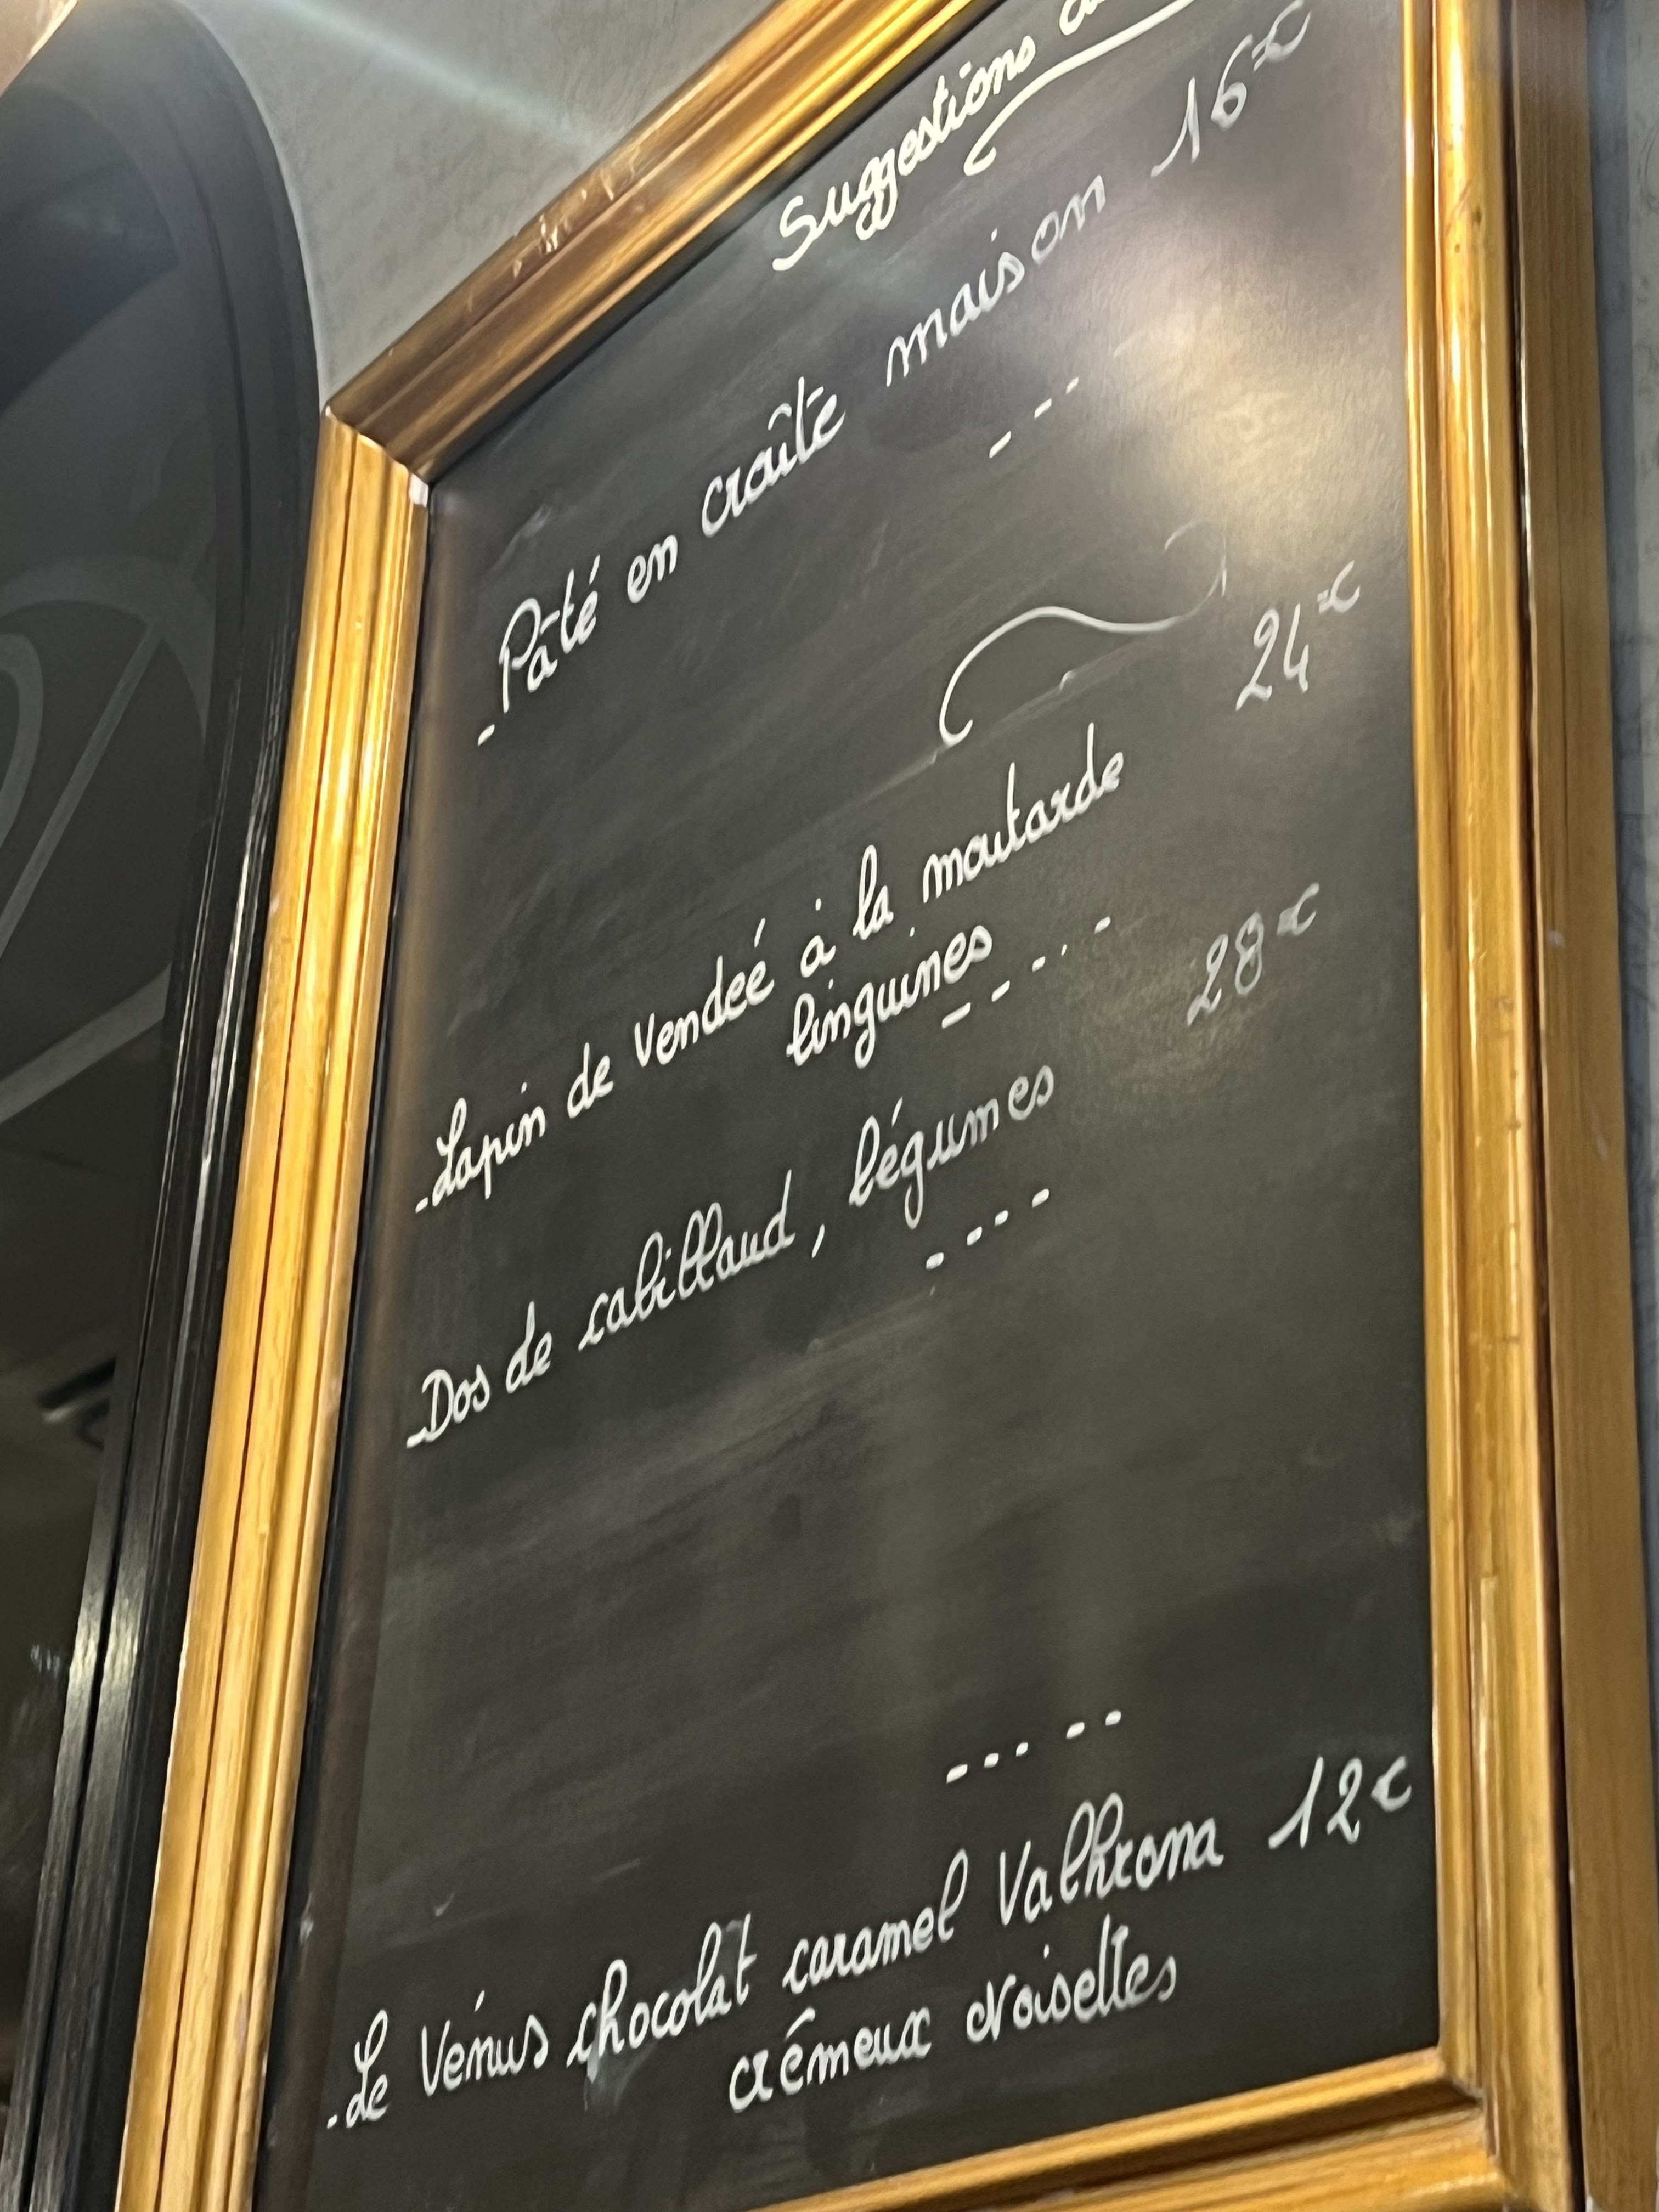 Suggestions
- Pâté en croûte maison 16€
- Lapin de Vendée à la moutarde 24€
linguines
- Dos de cabillaud, légumes 28€
- Le Vénus chocolat caramel Valhrona 12€
crémeux Noisettes